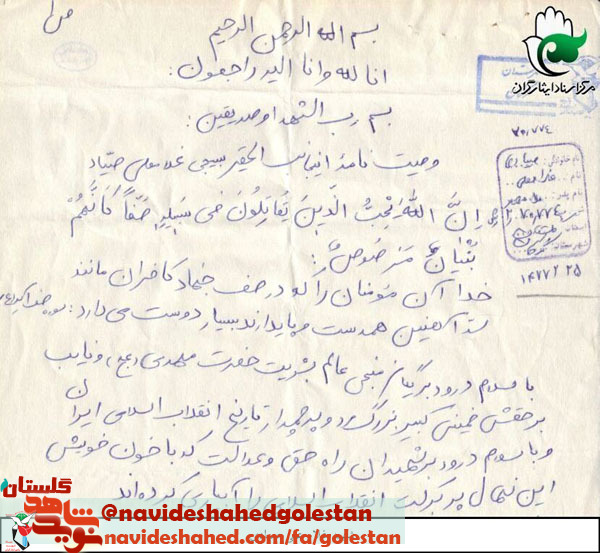 ص ۱
بسم الله الرحمن الرحیم
انا لله وانا الیه راجعون:
بسم رب الشهدا و صدیقین:
وصیت نامه اینجانب الحقیر بسیجی غلامعلی صیاد
اِنَّ اللهَ یُحِبُّ الَّذینَ یُقاتِلُونَ فی سَبیلِهِ صَفّاً کَاَنَّهُمْ
بُنْیانٌ مَرْصُوصٌ:
خدا آن مومنان را که در صف جهاد کافران مانند
سد آهنین همدست و پایدارند بسیار دوست می دارد:
با سلام و درود بر یگانه منجی عالم بشریت حضرت مهدی (عج) و نایب
بر حقش خمینی کبیر بزرگ تاریخ انقلاب اسلامی ایران
و با سلام و درود بر شهیدان راه حق و عدالت که با خون خویش
این نهال پر برکت انقلاب اسلامی را آبیاری کرده اند
مرکز اسناد ایثارگران
۲۰,۷۷۴
۱۴۷۷۲۲۵
نوید شاهد گلستان
@navideshahedgolestan
navideshahed.com/fa/golestan